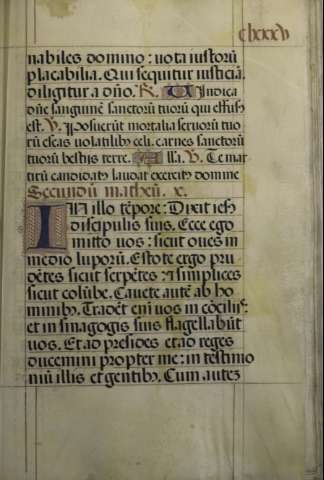 clxxxv
nabiles domino : uota iustorū
placabilia. Qui sequitur iusticiā
diligitur a dño. R. Uindica
dñe sanguinē sanctorū tuorū qui effusꝰ
est. V. Posuerūt mortalia seruorū tuo
rū escas uolatilibꝰ celi. carnes sanctorū
tuorū bestijs terre. Alla. V. Te mar
tirū candidatꝰ laudat exercitꝰ domine
Secundū matheū. x.
IN illo tēpore : Dixit iesꝰ
discipulis suis. Ecce ego
mitto uos : sicut oues in
medio luporū. Estote ergo pru
dētes sicut serpētes : ⁊ simplices
sicut colūbe. Cauete autē ab ho
minibꝰ. Tradēt eni uos in cōcilijs :
et in sinagogis suis flagellabūt
uos. Et ad presides et ad reges
ducemini propter me : in testimo
niū illis et gentibꝰ. Cum autez